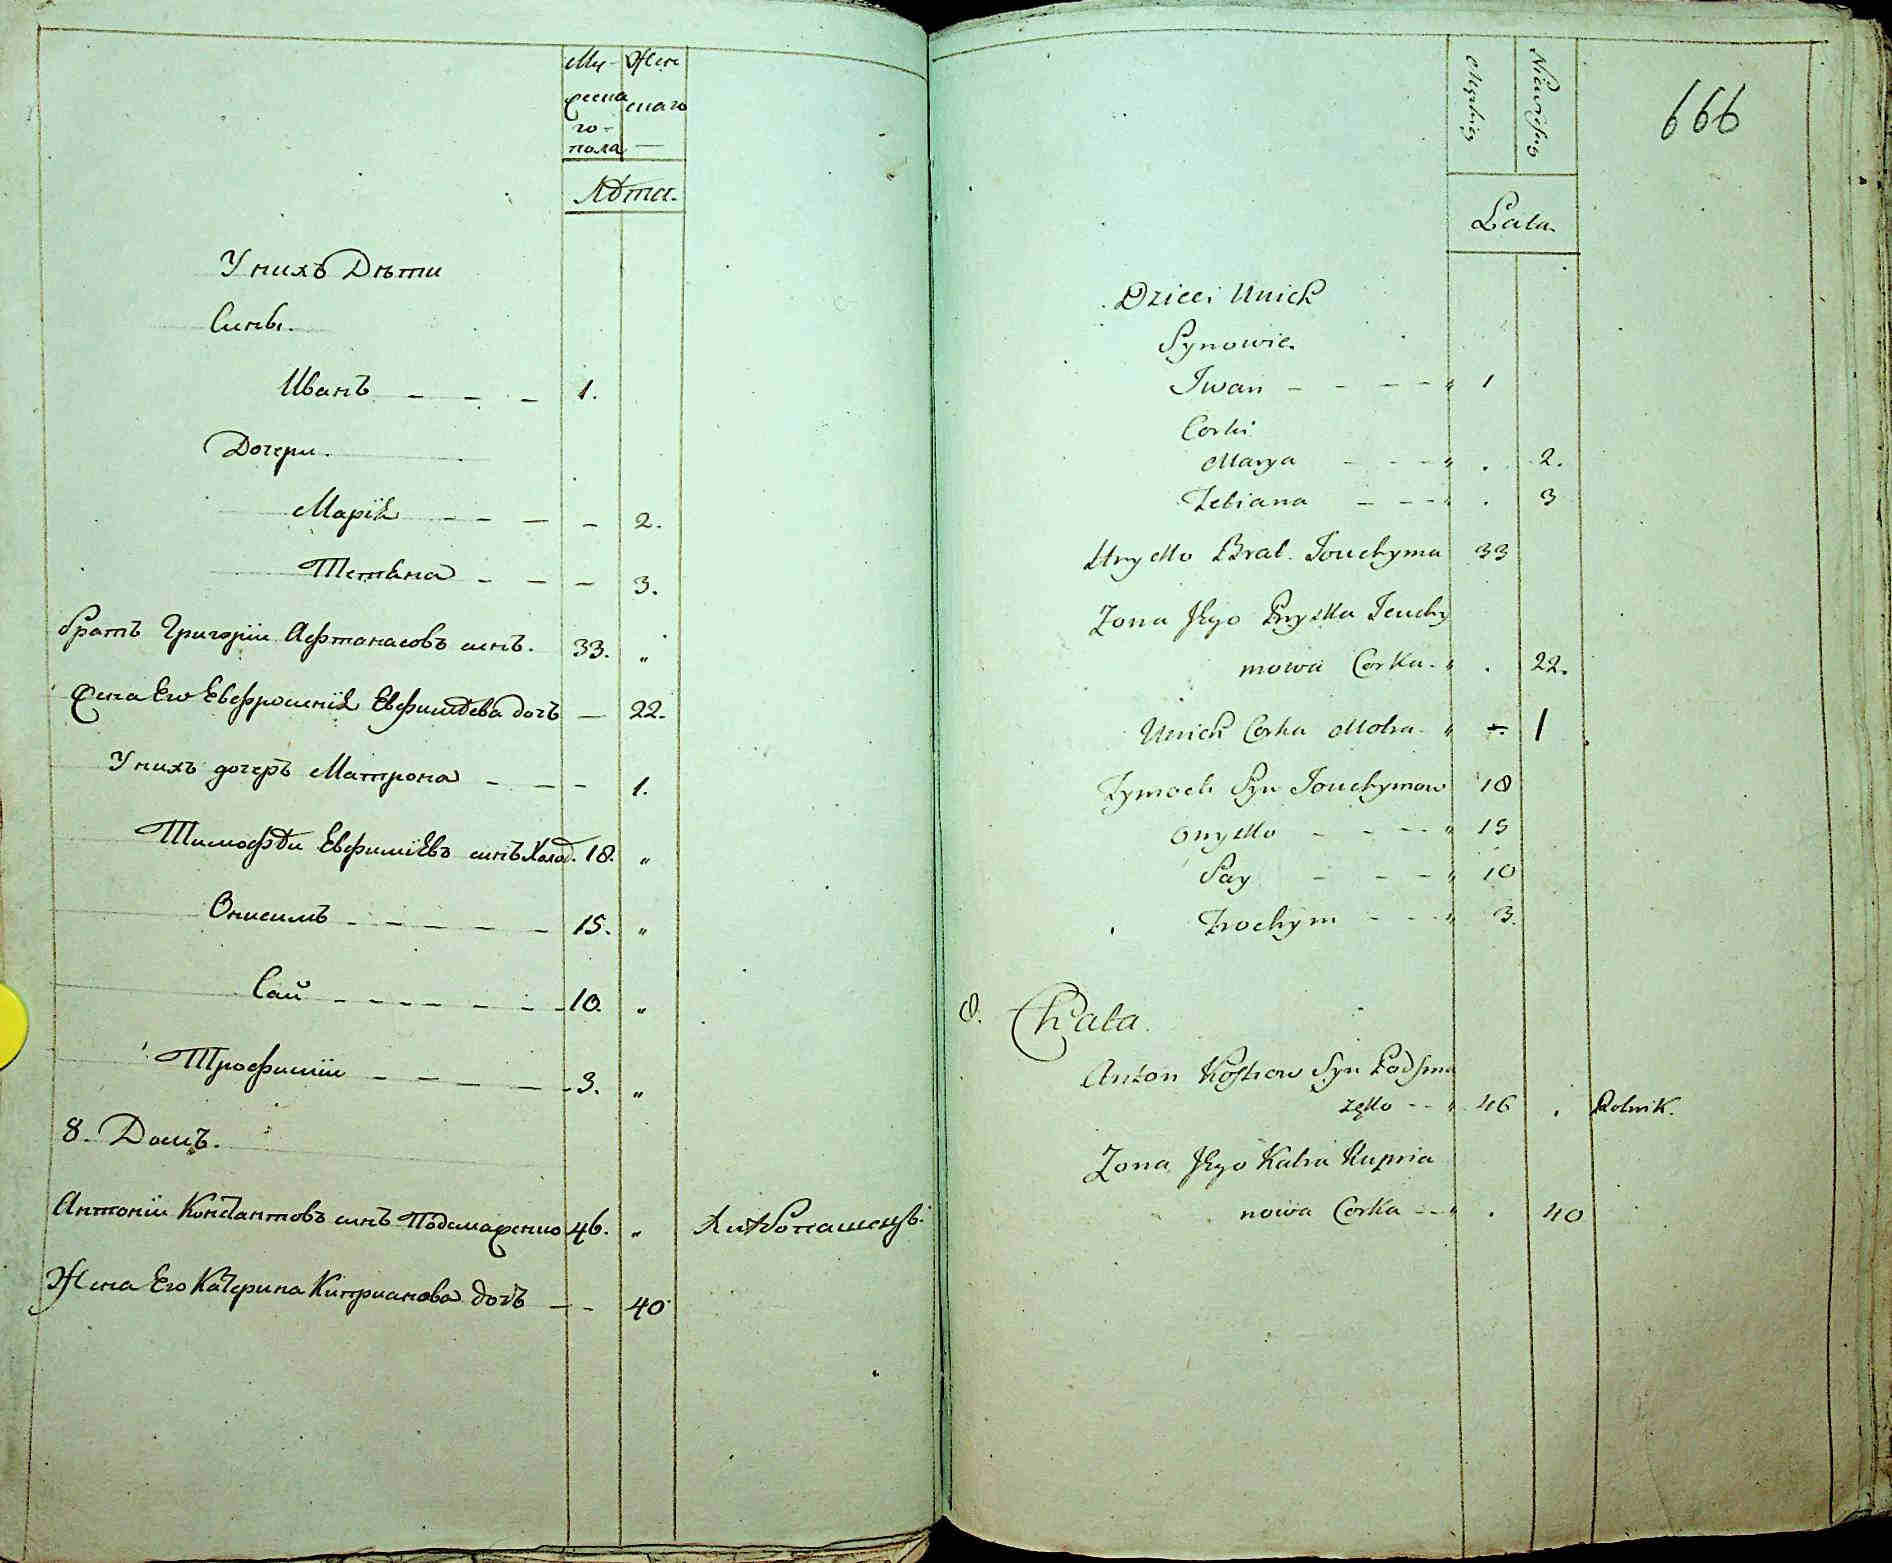 Му- Жен
жеска скаго
го-
пола —
Лѣта.
У нихъ Дѣти
Сины.
Иванъ — — — 1.
Дочери.
Марія — — — — 2.
Тетяна — — — 3.
братъ Григоріи Афтанасовъ синъ. 33. „
жена Его Евфросинія Евфимѣева дочъ — 22.
У нихъ дочеръ Матрона — — — 1.
Тимофѣи Евфимѣевъ синъ Холод. 18. „
Онисимъ — — — — — 15. „
Сай — — — — — — — 10. „
Трофимiи — — — — — 3. „
8. Домъ.
Антоніи Константовъ синъ Подсмаженко 46. „ Хлѣбопашецъ.
Жена Его Катерина Киприанова дочъ — — 40
Męzkiey
Niewieściey
666
Lata.
Dzieci Unich
Synowie.
Iwan — — — — „ 1
Corki
Marya — — — „ . 2.
Tetiana — — — „ . 3
Hryćko Brat Jouchyma 33
Zona Jego Pryśka Jeuchy
mowa Corka. „ . 22.
Unich Corka Motra. „ — 1
Tymoch Syn Jouchymow 18
Onyśko — — — — „ 15
Say — — — „ 10
Trochym — — — „ 3.
8. Chata.
Anton Kostiow Syn Podsma
żęko — — „ 46 . Rolnik.
Zona Jego Katra Kupria
nowa Corka — — „ . 40